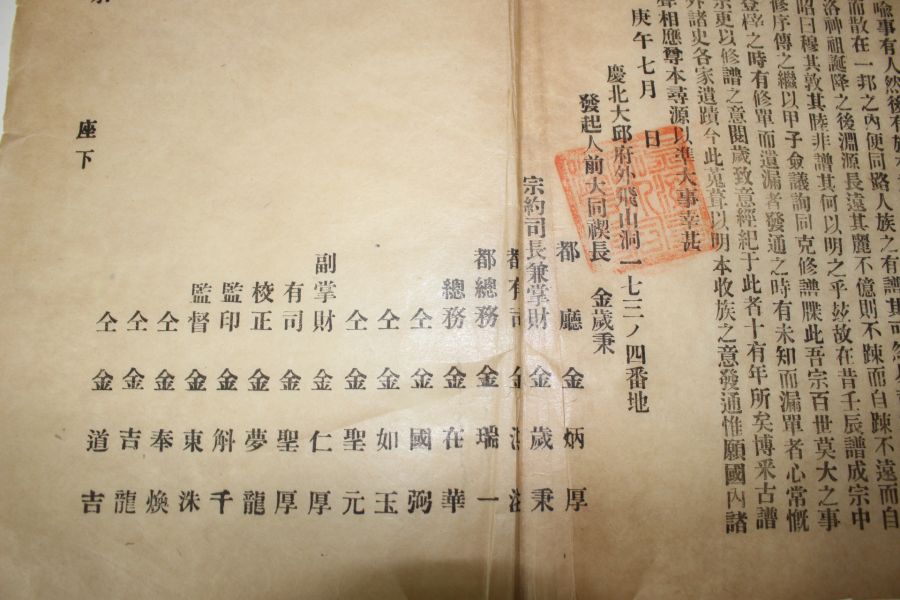 喩事有人然後有族
而散在一邦之內便同路人族之有譜其可
洛神祖誕降之後淵源長遠其麗不億則不踈而自踈不遠而自
昭曰穆其敦其陸非譜其何以明之乎玆故在昔壬辰譜成宗中
修序傳之繼以甲子僉議詢同克修譜牒此吾宗百世莫大之事
登梓之時有修單而遺漏者發通之時有未知而漏單者心常慨
宗更以修譜之意閱歲致意經紀于此者十有年所矣博釆古譜
外諸史各家遺蹟今此蒐葺以明本收族之意發通惟願國內諸
聲相應尊本尋源以準大事幸甚
庚午七月 日
慶北大邱府外飛山洞一七三ノ四番地
發起人前大同禊長 金歲秉
都廳 金炳厚
宗約司長兼掌財 金歲秉
都有司 金
都總務 金瑞一
總務 金在華
仝 金國弼
仝 金如玉
仝 金聖元
副掌財 金仁厚
有司 金聖厚
校正 金夢龍
監印 金斛千
監督 金東洙
仝 金奉煥
仝 金吉龍
仝 金道吉
座下